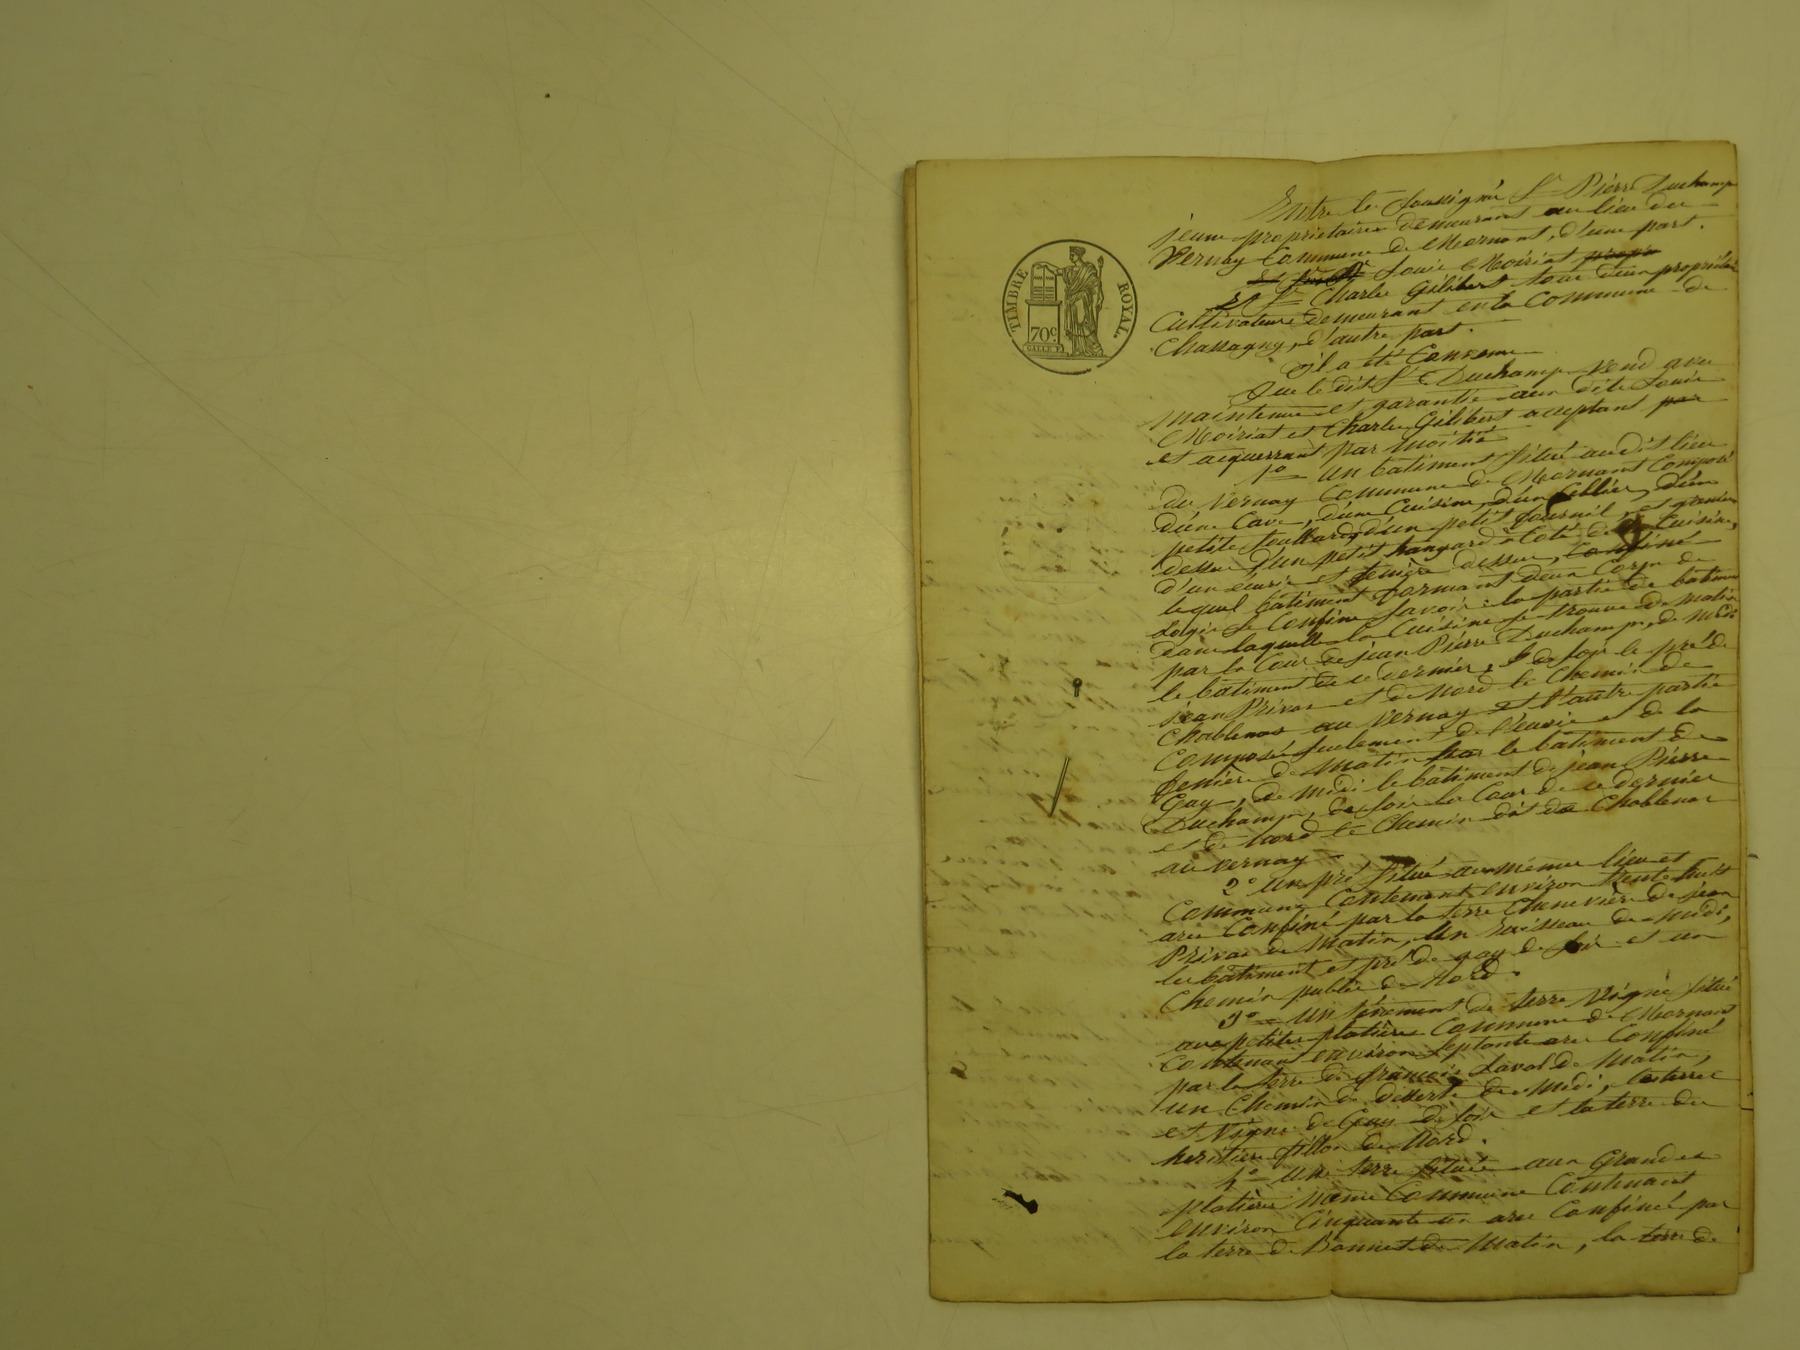 TIMBRE ROYAL
70c
Entre le Soussigné Sr Pierre Duchamp
jeune proprietaire demeurant au lieu du
Vernay Commune de Mornant, d'une part.
Louis Moiriat
Et Sr Charle Gilibert tous deux propriétaire
Cultivateurs demeurant en la Commune de
Chassagny, d'autre part.
il a été Convenu
Que le dit Sr Duchamp vend avec
maintenue et garantie aux dits Louis
Moiriat et Charle Gilibert aceptant par
et acquerrant par moitié
1o un batiment situé au dit lieu
du Vernay Commune de Mornant Composé
d'une Cave, d'une Cuisine, d'un Cellier, d'un
petit d'un petit fournil, et grenier
dessus d'un petit hangard a Coté de la Cuisine,
d'un écurie et feniere dessus, Confiné
lequel batiment formant deux Corps de
Logis se Confine savoir: la partie de batiment
dans laquelle la Cuisine se trouve de matin
par la Cour de jean Pierre Duchamp, de midi
le batiment de ce dernier, de soir le pré de
jean Privas et de Nord le Chemin de
Chablenas au Vernay et l'autre partie
Composé seulement de l'écurie et de la
feniere de matin par le batiment de
Gay, de midi le batiment de jean Pierre
Duchamp, de soir la Cour de ce dernier
et de Nord le Chemin dit de Chablenas
au Vernay
2o un pré situé au même lieu et
Commune Contenant environ trente huit
ares Confiné par la terre Chenevière de jean
Privas de matin, un ruisseau de midi,
les batiment et pré de gay de soir et un
Chemin public de Nord.
3o un ténement de terre Vigne situé
aux petites platières Commune de Mornant
Contenant environ septante ares Confiné
par la terre de françois Laval de Matin,
un Chemin de désserte de Midi, les terres
et Vigne de Gay de soir et la terre des
heritiers fillon de Nord.
4o une terre située aux Grandes
platières même Commune Contenant
environ Cinquante un ares Confinée par
la terre de Bonnet de Matin, la terre de